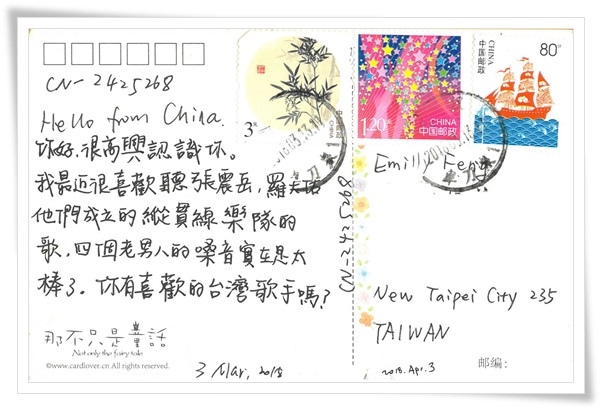 CN-2425268
Hello from China.
你好,很高興認識你。
我最近很喜歡聽張震岳,羅大佑
他們成立的縱貫線樂隊的
歌,四個老男人的嗓音實在是太
棒了。你有喜歡的台灣歌手嗎?
那不只是童話
Not only the fairy tale
©www.cardlover.cn All rights reserved.
3 Mar, 2018
3元
CHINA
中国邮政
1.20元
CHINA
中国邮政
80分
CHINA
中国邮政
CN-2425268
Emilly Feng
New Taipei City 235
TAIWAN
2018. Apr. 3
邮编: